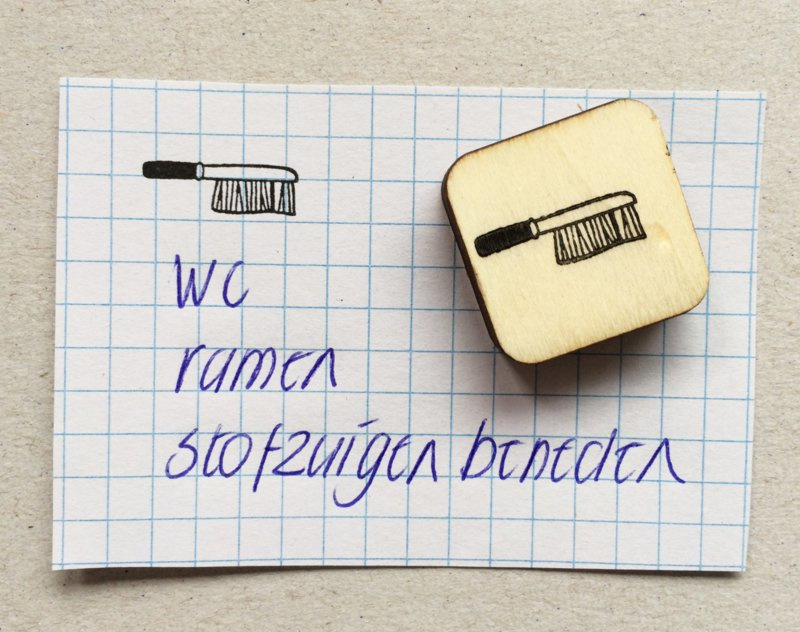 WC
ramen
stofzuigen beneden